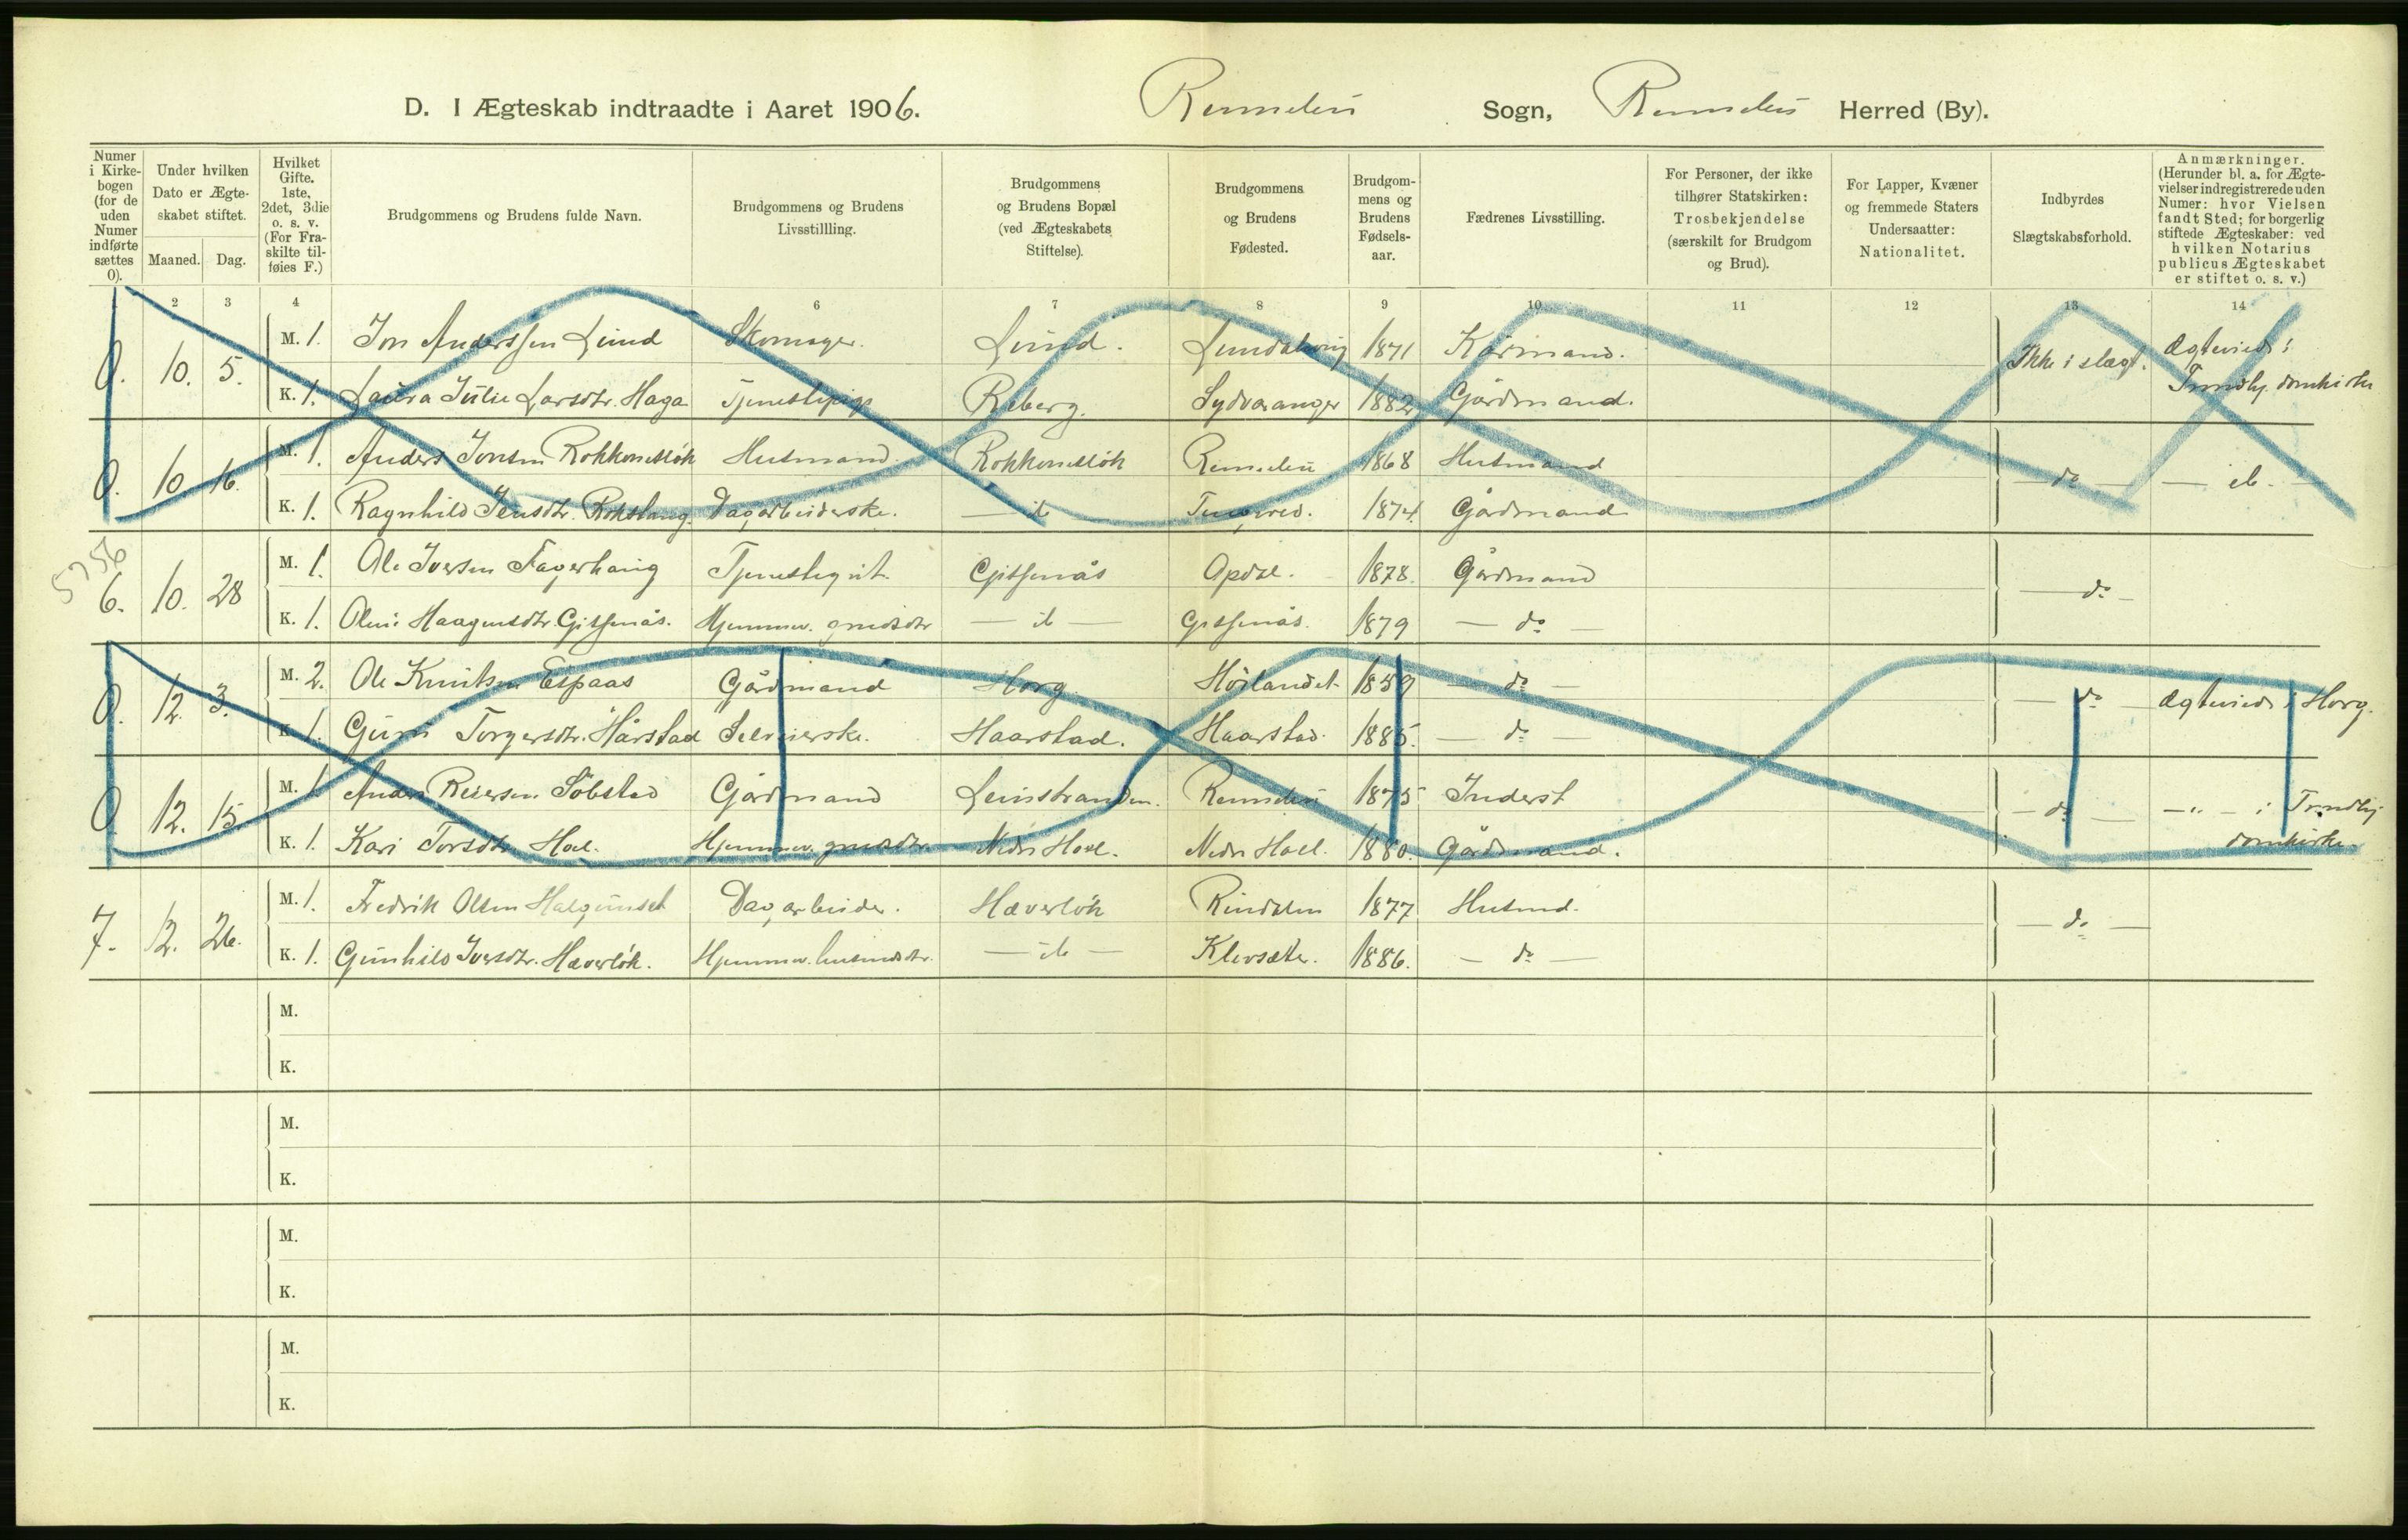 D. I Ægteskab indtraadte i Aaret 1906. Rennebu Sogn, Rennebu Herred (By).
Numer i Kirkebogen (for de uden Numer indførte sættes 0).
Under hvilken Dato er Ægteskabet stiftet.
Maaned. Dag.
Hvilket Gifte. 1ste, 2det, 3die o. s. v. (For Fraskilte tilføies F.)
Brudgommens og Brudens fulde Navn.
Brudgommens og Brudens Livsstillling.
Brudgommens og Brudens Bopæl (ved Ægteskabets Stiftelse).
Brudgommens og Brudens Fødested.
Brudgommens og Brudens Fødselsaar.
Fædrenes Livsstilling.
For Personer, der ikke tilhører Statskirken: Trosbekjendelse (særskilt for Brudgom og Brud).
For Lapper, Kvæner og fremmede Staters Undersaatter: Nationalitet.
Indbyrdes Slægtskabsforhold.
Anmærkninger. (Herunder bl. a. for Ægtevielser indregistrerede uden Numer: hvor Vielsen fandt Sted; for borgerlig stiftede Ægteskaber: ved hvilken Notarius publicus Ægteskabet er stiftet o. s. v.)
2 3 4 6 7 8 9 10 11 12 13 14
0. 10. 5. M. 1. Jon Anderssen Lund Skomager. Lund. 1871 Kårmand. Ikke i slægt. Ægteviede i
K. 1. Laura Julie Larsdtr. Haga Tjenestepige Reberg. Sydvaranger 1882 Gårdmand. Trondhj. domkirke
0. 10 16. M. 1. Anders Jonsen Husmand. Rennebu 1868 Husmand — do — — ib. —
K. 1. Ragnhild Jensdtr. Dagarbeiderske. — ib Tingvold. 1874. Gårdmand
5756
6. 10. 28 M. 1. Ole Iversen Fagerhaug Tjenestegut. Gissenås Opdal. 1878. Gårdmand — do —
K. 1. Oline Haagensdtr. Gissenås. Hjemmev. grmdsdtr — ib — Gissenås. 1879 — do —
0. 12. 3. M. 2. Ole Knutsen Espaas Gårdmand Horg Hölandet. 1859 — do — — do — Ægteviede i Horg.
K. 1. Guru Torgersdtr. Hårstad Selveierske. Haarstad. Haarstad. 1885. — do —
0. 12. 15 M. 1. Anders Reiersen Söbstad Gårdmand Leinstranden. Rennebu 1875 Inderst — do — — " — i Trondhj
K. 1. Kari Torsdtr. Hoel. Hjemmev. grmdsdtr. Nedre Hoel. Nedre Hoel. 1880. Gårdmand. domkirke
7. 12. 26. M. 1. Fredrik Olsen Halgunset Dagarbeider. Hæverlök Rindalen 1877 Husmd. — do —
K. 1. Gunhild Iversdtr. Hæverlök. Hjemmev. husmdsdtr. — ib — Klevsæter. 1886. — do —
M.
K.
M.
K.
M.
K.
M.
K.